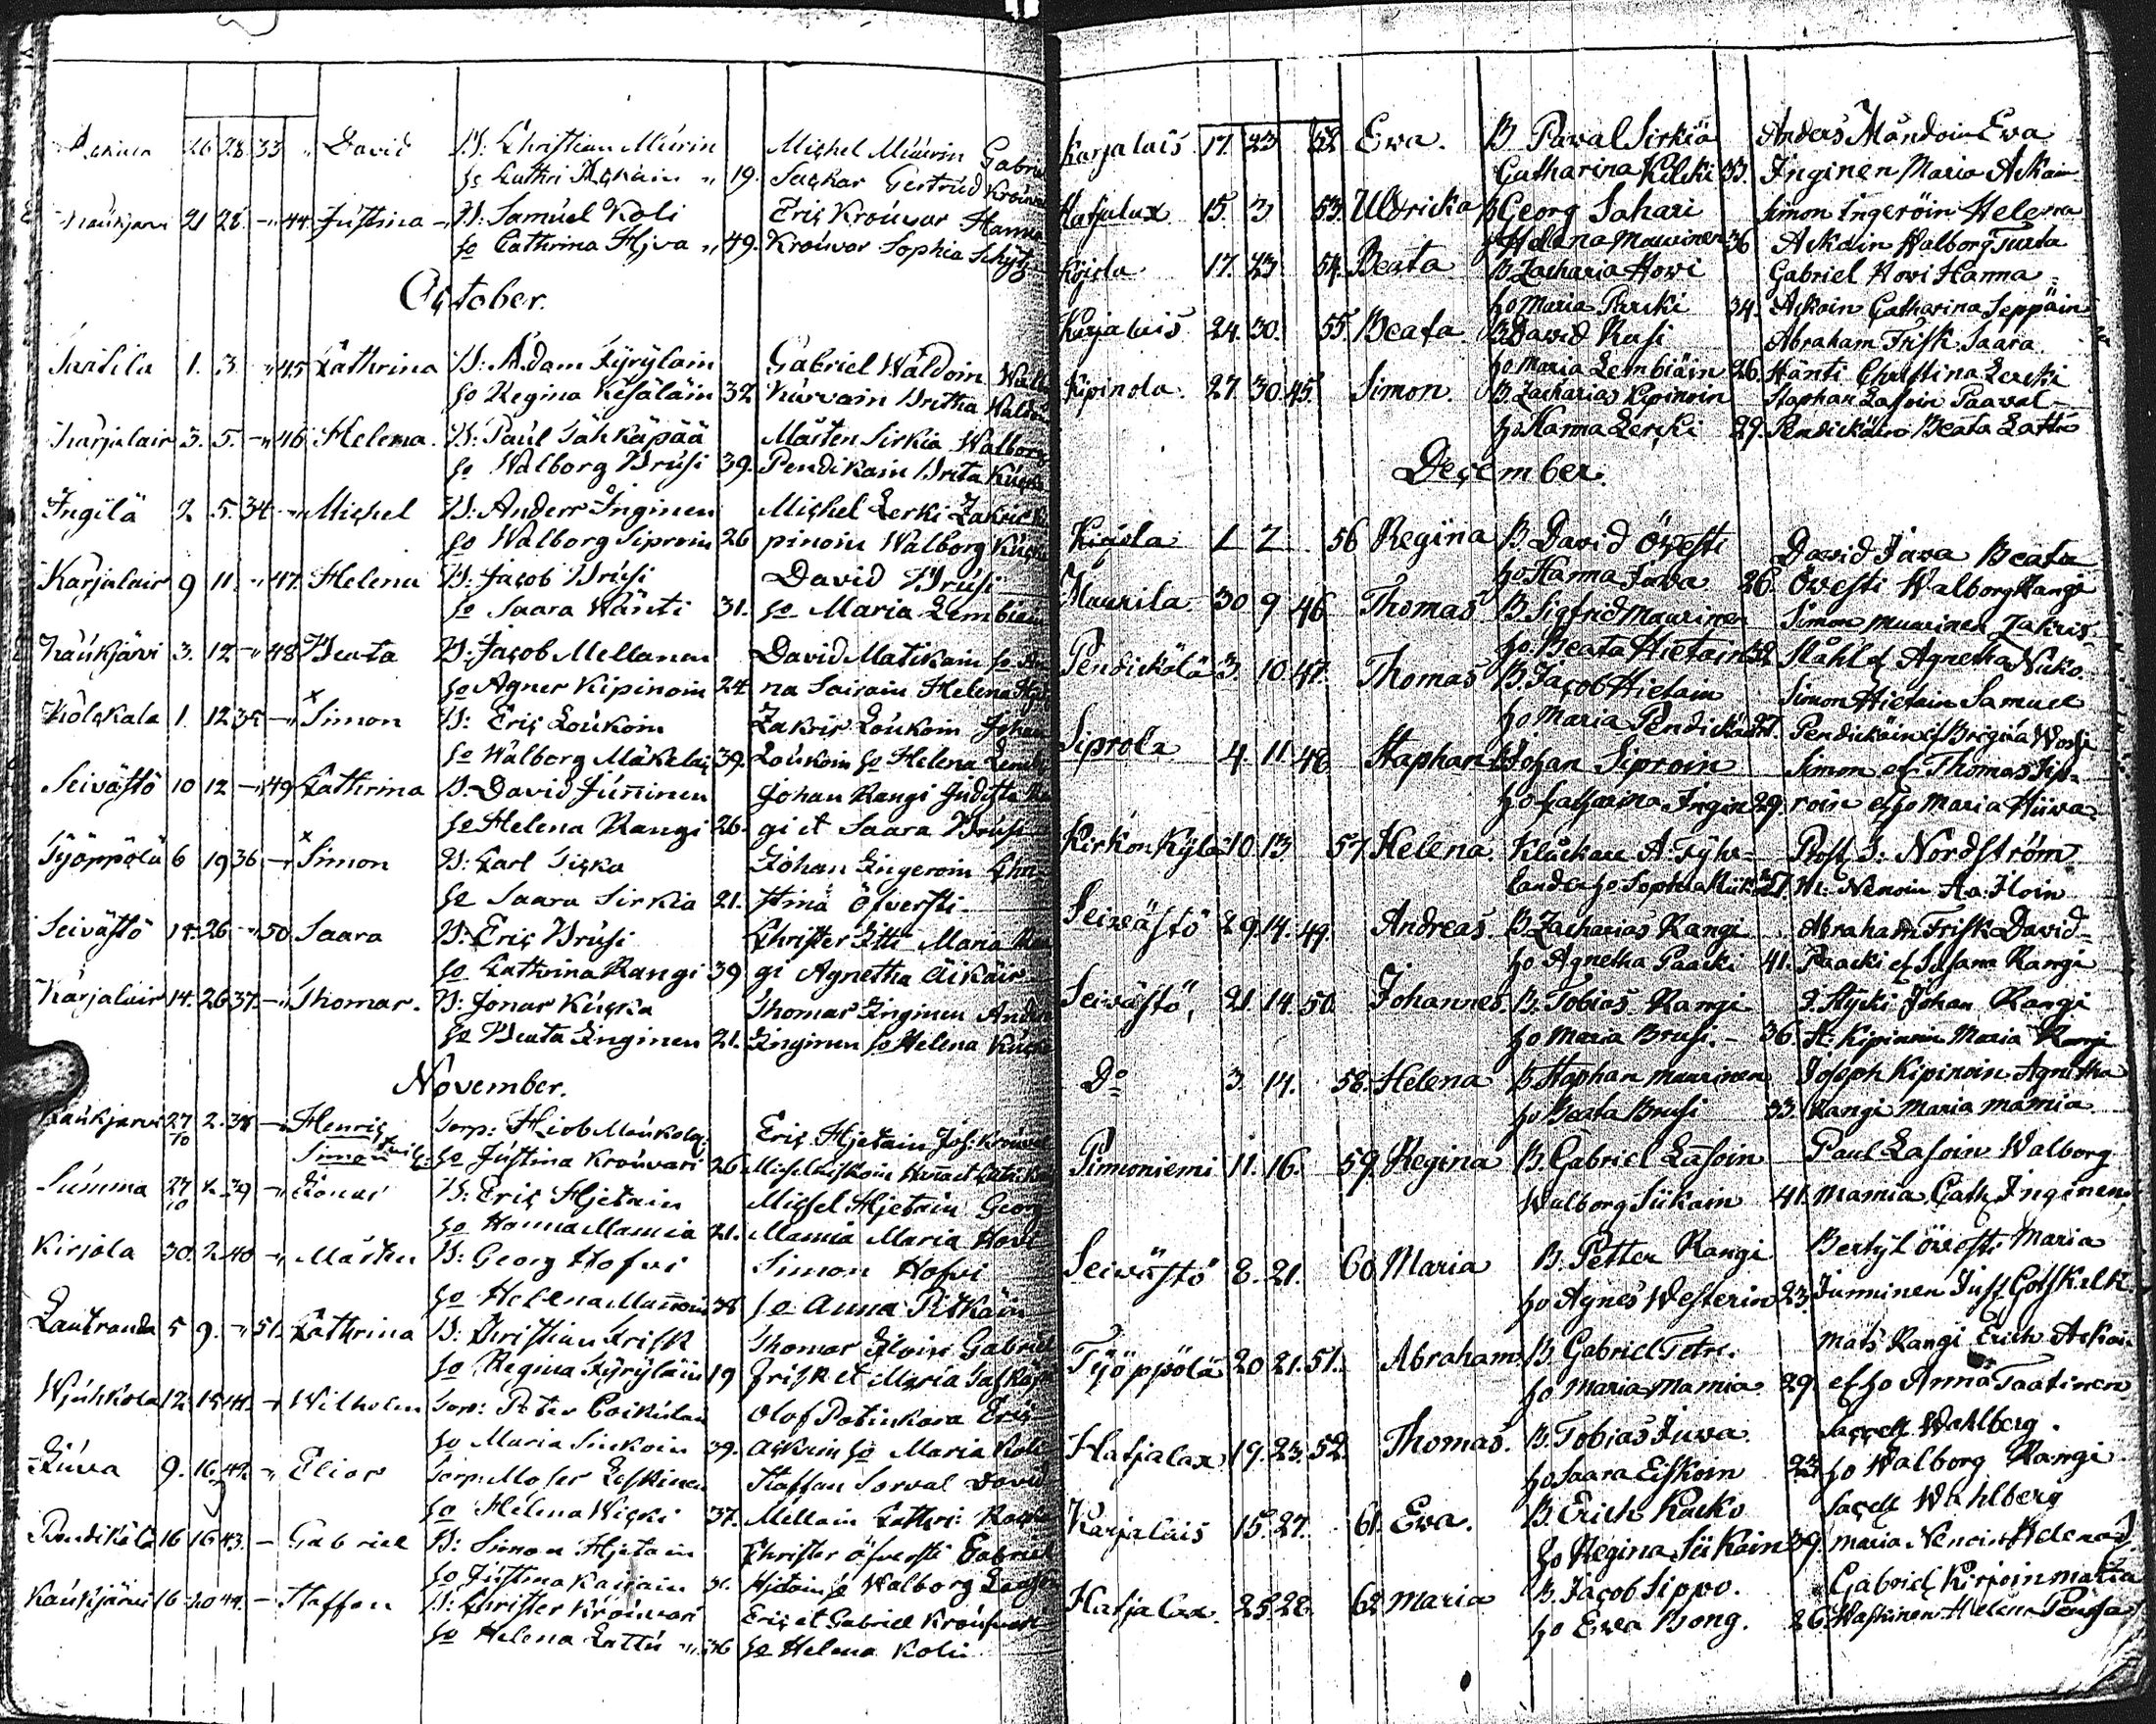 26 28 33 " David B: Christian Muurin Michel Muurin Gabriel
ho Cathri Ackain " 19. Suckar Gertrud Krouvar
Kaukjärvi 21 28. " 44 Justina B: Samuel Koli Eric Krouvar Hanna
ho Cathrina Hjva " 49. Krouvar Sophia Schytz
October.
1. 3. " 45 Cathrina B: Adam Tyryläin Gabriel Waldoin
ho Regina Kesäläin 32 Kurvain Britha
Karjalais 3. 5. " 46 Helema. B: Paul Sähkäpää Mårten Sirkia Walborg
ho Walborg Brusi 39. Pendikain Brita
Ingilä 2 5. 34 " Michel B: Anders Inginen Michel Lerki Zakris
ho Walborg Siproin 26 pinoin Walborg
Karjalais 9 11 " 47. Helena B: Jacob Brusi David Brusi
ho Saara Wänti 31. ho Maria Lembiäin
Kaukjärvi 3. 12 " 48 Beata B: Jacob Mellanen David Matikain ho An
ho Agnes Kipinoin 24 na Sairain Helena
Kolckala 1. 12 35 " Simon B: Eric Loukoin Zakris Loukoin Johan
ho Walborg Mäkeläi 39. Loukoin ho Helena
Seivästö 10 12 " 49 Cathrina B. David Junninen Johan Rangi Judith Ran
ho Helena Rangi 26. gi et Saara Brusi
Työppölä 6 19 36 " Simon B: Carl Sicka Johan Ingeroin Chri
ho Saara Sirkia 21. stina Öfversti
Seivästö 14. 26 " 50 Saara B: Eric Brusi Christer Itti Maria Ran
ho Cathrina Rangi 39 gi Agnetha Äikäis
Karjalais 14. 26 37. " Thomas. B: Jonas Kucka Thomas Inginen Anders
ho Beata Inginen 21. Inginen ho Helena
November.
Kaukjärvi 27/10 2. 38 " Henric Torp: Hiob Moukola Eric Hjetain Jos: Krouvar
Simon ho Justina Krouvari 26
Summa 27/10 2. 39 " Jonas B: Eric Hjetain Michel Hjetain Georg
ho Hanna Mamia 21. Mamia Maria Hovi
Kirjola 30. 2. 40 " Mårten B: Georg Hofvi Simon Hofvi
ho Helena 38 ho Anna Pitkäin
Lautranda 5 9. " 51. Cathrina B: Christian Frisk Thomas Iloin Gabriel
ho Regina Tyryläin 19 Frisk et Maria
12. 15 41. " Wilhelm Torp: Peter Olof Potinkara Eric
ho Maria Sinkoin 39. Ackain ho Maria Koli
Juva 9. 16 42. " Elias Torp: Moses Leskinen Staffan Torval David
ho Helena Wicki 37. Mellain Cathri:
Pendikälä 16 16 43. " Gabriel B: Simon Hjetain Christer öfversti Gabriel
ho Justina Kairain Hjetain ho Walborg
Kaukjärvi 16 20 44. " Staffan B: Christer Krouvari Eric et Gabriel Krouvari
ho Helena Lattu " 36 ho Helena Koli
Karjalais 17. 23 52 Eva. B Pawal Sirkiä Anders Mändoin Eva
Catharina Kolcki 33. Inginen Maria Ackain
Hatjalax 15. 3 53. Uldricka B Georg Sahari Simon Ingeröin Helena
ho Helena Maurinen 36 Ackain Walborg Turta
Kojola 17. 23 54. Beata B. Zacharia Howi Gabriel Howi Hanna
ho Maria Parcki 34. Ackain Catharina Seppäin
Karjalais 24. 30. 55. Beata. B. David Rusi Abraham Frisk Saara
ho Maria Lembiäin 26. Hänti Christina Lercki
Kipinola. 27. 30. 45. Simon. B. Zacharias Kipinoin Staphan Lasoin Paaval
ho Hanna Lercki 29. Pendickäin Beata Latto
December.
Kojola 1. 2. 56 Regina B David Öwesti David Juwa Beata
ho Hanna Juwa 26. Öwesti Walborg Rangi
Maurila 30 9 46 Thomas B. Sigfrid Maurinen Simon Muurinen Zakris
ho Beata Hietain 32 Ståhl et Agnetha Nicko.
Pendickölä 3. 10 47. Thomas B. Jacob Hietain Simon Hietain Samuel
ho Maria Pendickäin 27. Pendickäin et Brigita
Siprola 4. 11. 48. Staphan B Johan Siproin Simon et Thomas Sip-
ho Catharina Ingin 29. roin et ho Maria Hiiva
Kirkonkylä 10. 13. 57. Helena. Klåckare A. Tyhr- Prost J: Nordström
lander ho Sophia 27. Nenoin Iloin
Seiwästö 29. 14. 49. Andreas B. Zacharias Rangi Abraham Frisk David
ho Agnetha Paacki 41. Paacki et Susana Rangi
Seiwästö, 21. 14. 50. Johannes. B. Tobias Rangi J. Hycki Johan Rangi
ho Maria Brusi. - 36. A. Kipinoin Maria Rangi
Do 3. 14. 58. Helena B. Staphan Maurinen Joseph Kipinoin Agnetha
ho Beata Brusi 33. Rangi Maria Mamia
Pimioniemi 11. 16. 59. Regina B. Gabriel Lasoin Paul Lasoin Walborg
Walborg Siikain 41. Mamia Cath: Inginen
Seiwästö 8. 21. 60. Maria B. Petter Rangi Bertyl öwesti Maria
ho Agnes Westerin 23. Junninen
Työppölä 20 21. 51. Abraham. B. Gabriel Tetri. Mats Rangi Erich Ackain
ho Maria Mamia 29. et ho Anna Taatinen
Hatjalax 19. 23. 52. Thomas. B. Tobias Juwa. Wahlberg.
ho Saara Eiskoin 23. ho Walborg Rangi.
Karjalais 15. 27. 61. Eva. B. Erich Kucko Wahlberg
ho Regina Siikain 39. Maria Nenoin Helena
Hatjalax. 25 28. 62 Maria B. Jacob Sippo. Gabriel Kirjoin Maria
ho Ewa Bong. 26. Helena